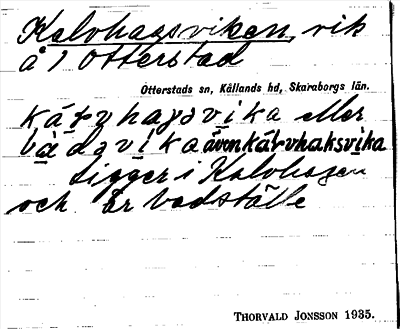 Kalvhagsviken, vik
å 1 Otterstad
Otterstads sn, Kållands hd, Skaraborgs län.
eller
även kárvhaksvika
Ligger i Kalvhagen
och är badställe
THORVALD JONSSON 1935.